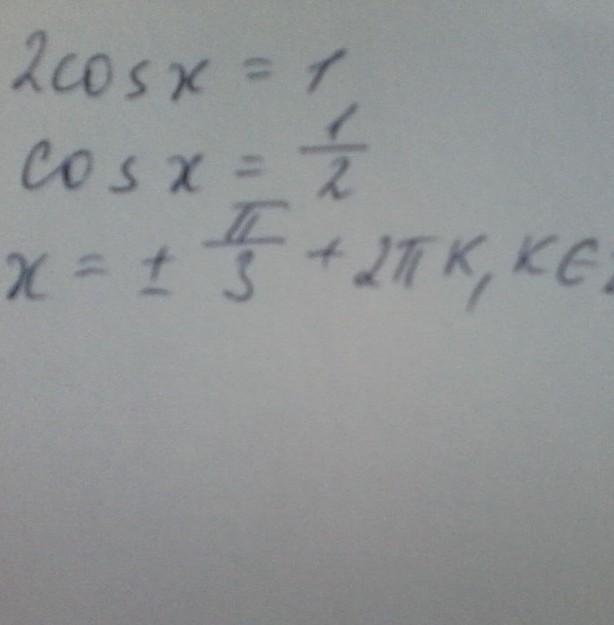 2cosx = 1
cosx = 1/2
x = ± π/3 + 2πk, k∈